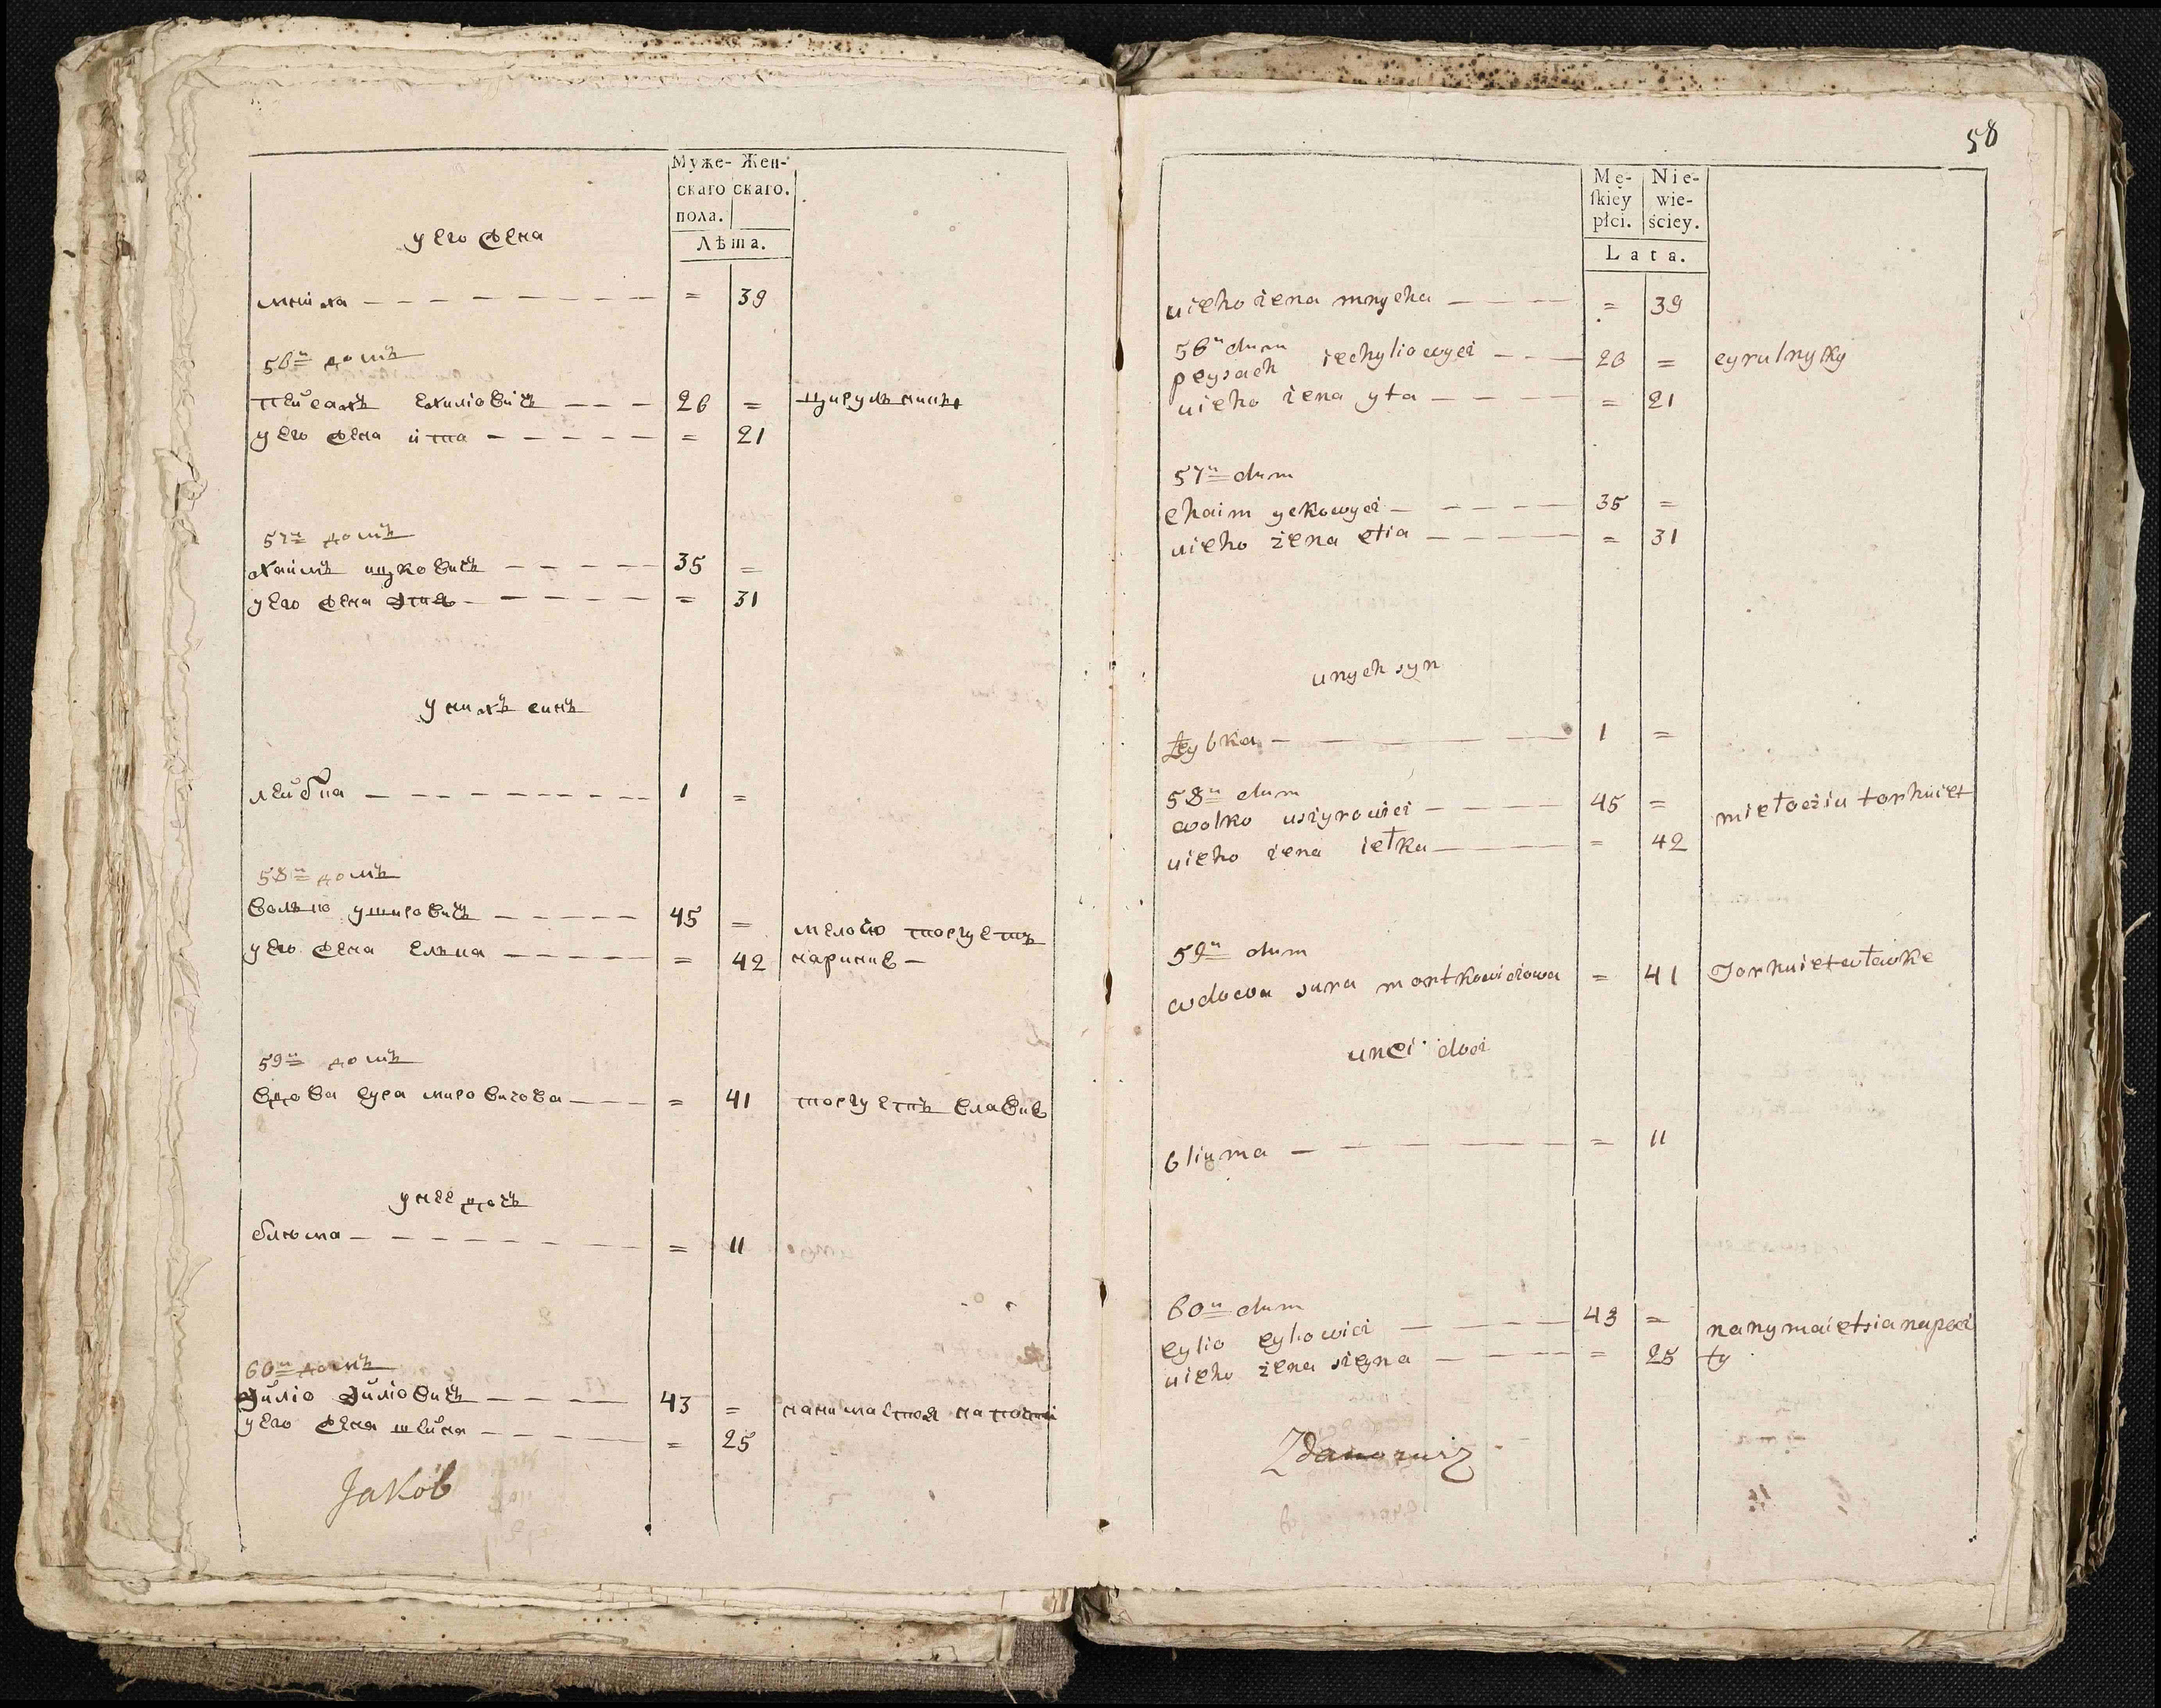 Муже- Жен-
скаго скаго.
пола.
Лѣта.
у его жена
мниха — = 39
56й домъ
пейсахъ ехиліовичъ — 26 = цирульникъ
у его жена ита — = 21
57й домъ
хаимъ ицковичъ — 35 =
у его жена этия — = 31
у нихъ синъ
лейбка — 1 =
58й домъ
волько уширобичъ — 45 = мелочю торгуетъ
у его жена елька — = 42 наринке —
59й домъ
вдова сура — = 41 торгуетъ влавке
у нее дочь
блюма — = 11
60й домъ
эйліо эйліовичъ — 43 = нанимается на
у его жена шейна — = 25
Jakób
58
Mę- Nie-
ſkiey wie-
płci. ściey.
Lata.
uieho żena mnycha — = 39
56y dum
peysach iechyliowycz — 26 = cyrulnyky
uieho żena yta — = 21
57y dum
chaim yckowycz — 35 =
uieho żena etia — = 31
unych syn
Łeybka — 1 =
58y dum
wolko uszyrowicz — 45 = miełocziu torhuiet
uieho żena iełka — = 42
59y dum
wdowa sura mortkowiczowa = 41 Torhuiet wławke
unei docz
bliuma — = 11
60y dum
eylio eylowicz — 43 = nanymaietsia napocz
uieho żena szeyna — = 25 ty